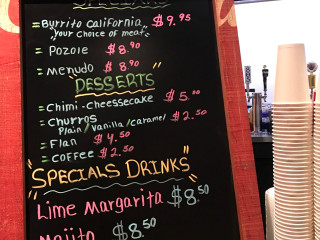 SPECIALS
=Burrito California $9.95
"your choice of meat"
= Pozole $8.90
= Menudo $8.90
DESSERTS
= Chimi-cheessecake $5.00
= Churros $2.50
Plain/Vanilla/caramel
= Flan $4.50
= COFFEE $2.50
"SPECIALS DRINKS"
Lime Margarita $8.50
Mojito $8.50